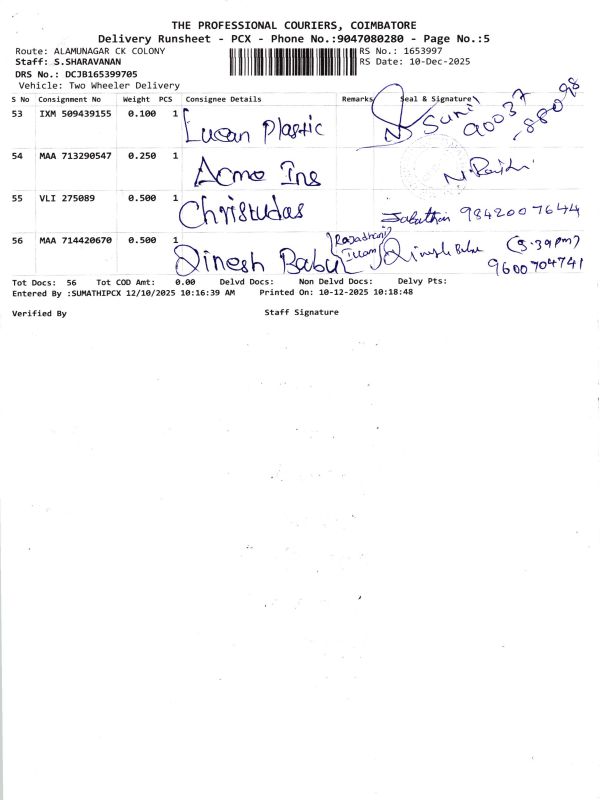 THE PROFESSIONAL COURIERS, COIMBATORE
Delivery Runsheet - PCX - Phone No.:9047080280 - Page No.:5
Route: ALAMUNAGAR CK COLONY
RS No.: 1653997
Staff: S.SHARAVANAN
RS Date: 10-Dec-2025
DRS No.: DCJB165399705
Vehicle: Two Wheeler Delivery
S No Consignment No Weight PCS Consignee Details Remarks Seal & Signature
53 IXM 509439155 0.100 1 Lucan Plastic Suni 90037 88098
54 MAA 713290547 0.250 1 Acmo Ins
55 VLI 275089 0.500 1 Christudas 9842007644
56 MAA 714420670 0.500 1 Dinesh Babu Dinesh Babu 9600704741
Tot Docs: 56 Tot COD Amt: 0.00 Delvd Docs: Non Delvd Docs: Delvy Pts:
Entered By :SUMATHIPCX 12/10/2025 10:16:39 AM Printed On: 10-12-2025 10:18:48
Verified By Staff Signature